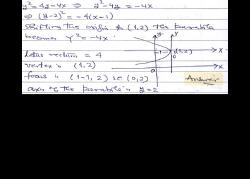 y²=4y-4x ⇒ y²-4y = -4x
⇒ (y-2)² = -4(x-1)
Shifting the origin to (1,2) the parabola
becomes Y² = -4X
Latus rectum = 4
vertex is (1,2)
focus is (1-1, 2) i.e. (0,2)
axis of the parabola is y=2
Y
y
(1,2)
X
x
0
Answer